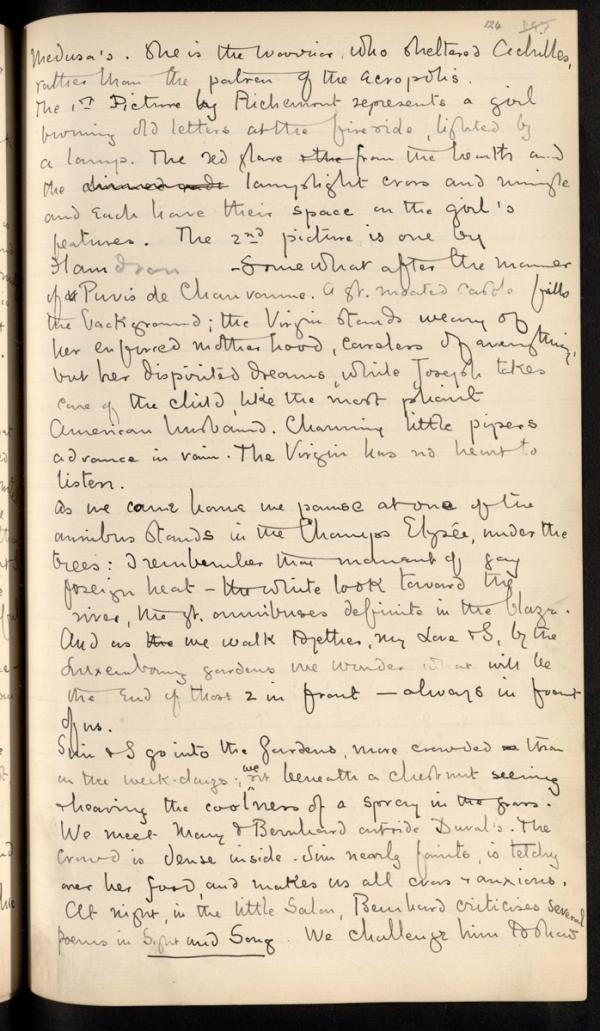 124
Medusa's. She is the warrior, who sheltered Achilles,
rather than the patron of the Acropolis.
The 1st Picture by Richemont represents a girl
burning old letters at the fireside, lighted by
a lamp. The red glare & the from the hearth and
the dimmed lamplight cross and mingle
and each have their space on the girl's
features. The 2nd picture is one by
- Somewhat after the manner
of Puvis de Chavannne. A gt. moated castle fills
the background; the Virgin stands weary of
her enforced motherhood, careless of everything,
but her dispirited dreams, while Joseph takes
care of the child, like the most pliant
American husband. Charming little pipers
advance in vain. The Virgin has no heart to
listen.
As we came home we pause at one of the
omnibus stands in the Champs Elysée, under the
trees: I remember that moment of gay
foreign heat – the white look toward the
river, the gt. omnibuses definite in the blaze.
And as the we walk together, my Love & S, by the
Luxembourg gardens we wonder what will be
the end of those 2 in front – always in front
of us.
Sim & I go into the Gardens, more crowded than
on the week-days; we sit beneath a chestnut seeing
& hearing the coolness of a spray in the grass.
We meet Mary & Bernhard outside Duval's. The
crowd is dense inside. Sim nearly faints, is tetchy
over her food, and makes us all cross & anxious.
At night, in the little Salon, Bernhard criticises several
poems in Sight and Song. We challenge him to show